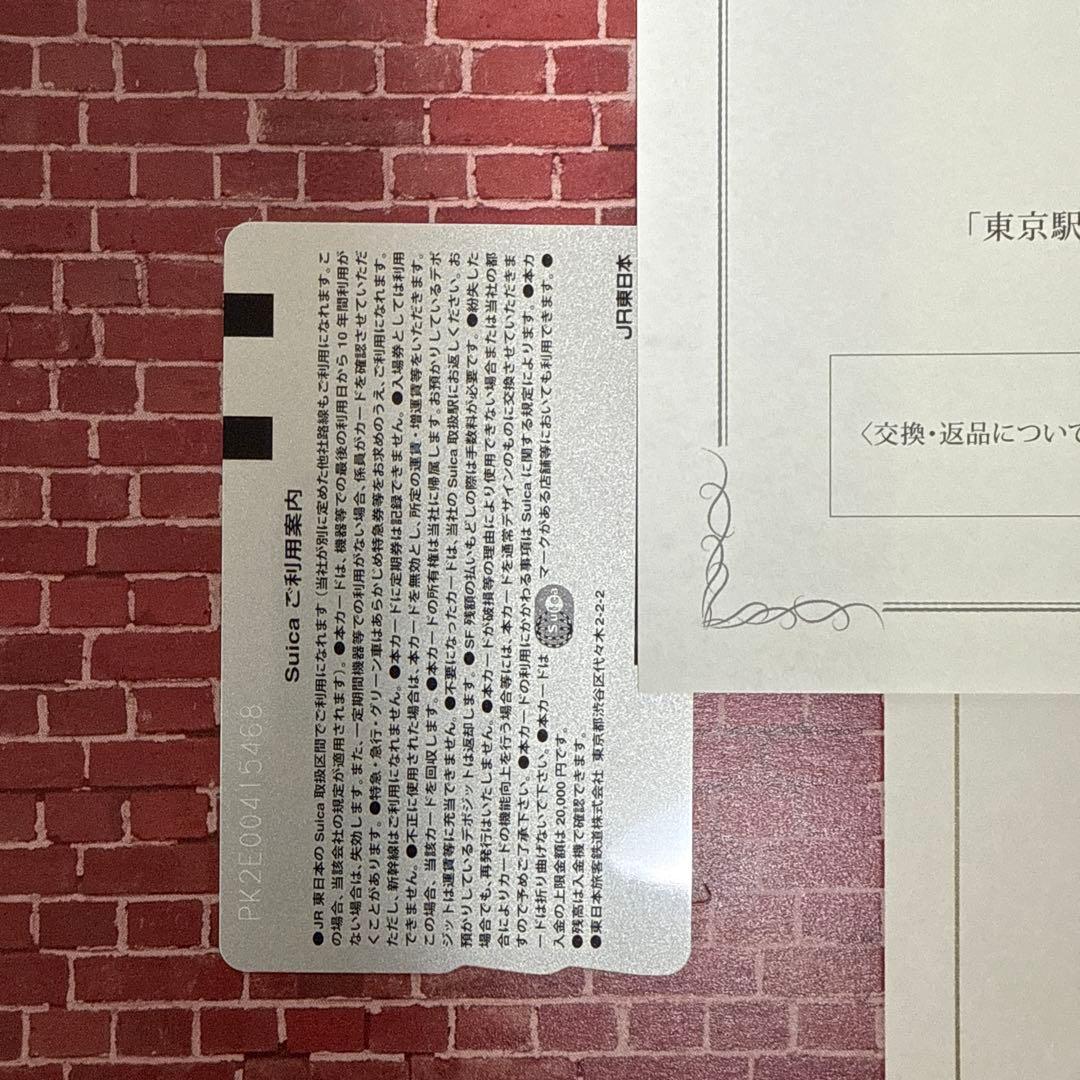 Suica ご利用案内
●JR 東日本の Suica 取扱区間でご利用になれます（当社が別に定めた他社路線もご利用になれます。こ
の場合、当該会社の規定が適用されます）。●本カードは、機器等での最後の利用日から 10 年間利用が
ない場合は、失効します。また、一定期間機器等での利用がない場合、係員がカードを確認させていただ
くことがあります。●特急・急行・グリーン車はあらかじめ特急券等をお求めのうえ、ご利用になれます。
ただし、新幹線はご利用になれません。●本カードに定期券は記録できません。●入場券としては利用
できません。●不正に使用された場合は、本カードを無効とし、所定の運賃・増運賃等をいただきます。
この場合、当該カードを回収します。●本カードの所有権は当社に帰属します。お預かりしているデポ
ジットは運賃等に充当できません。●不要になったカードは、当社の Suica 取扱駅にお返しください。お
預かりしているデポジットは返却します。●SF 残額の払いもどしの際は手数料が必要です。●紛失した
場合でも、再発行はいたしません。●本カードが破損等の理由により使用できない場合または当社の都
合によりカードの機能向上を行う場合等には、本カードを通常デザインのものに交換させていただきま
すので予めご了承下さい。●本カードの利用にかかわる事項は Suica に関する規定によります。●本カ
ードは折り曲げないで下さい。●本カードは Suica マークがある店舗等においても利用できます。●
入金の上限金額は 20,000 円です。
●残高は入金機で確認できます。
●東日本旅客鉄道株式会社 東京都渋谷区代々木2-2-2
JR東日本
PK2E00415468
「東京駅
〈交換・返品について